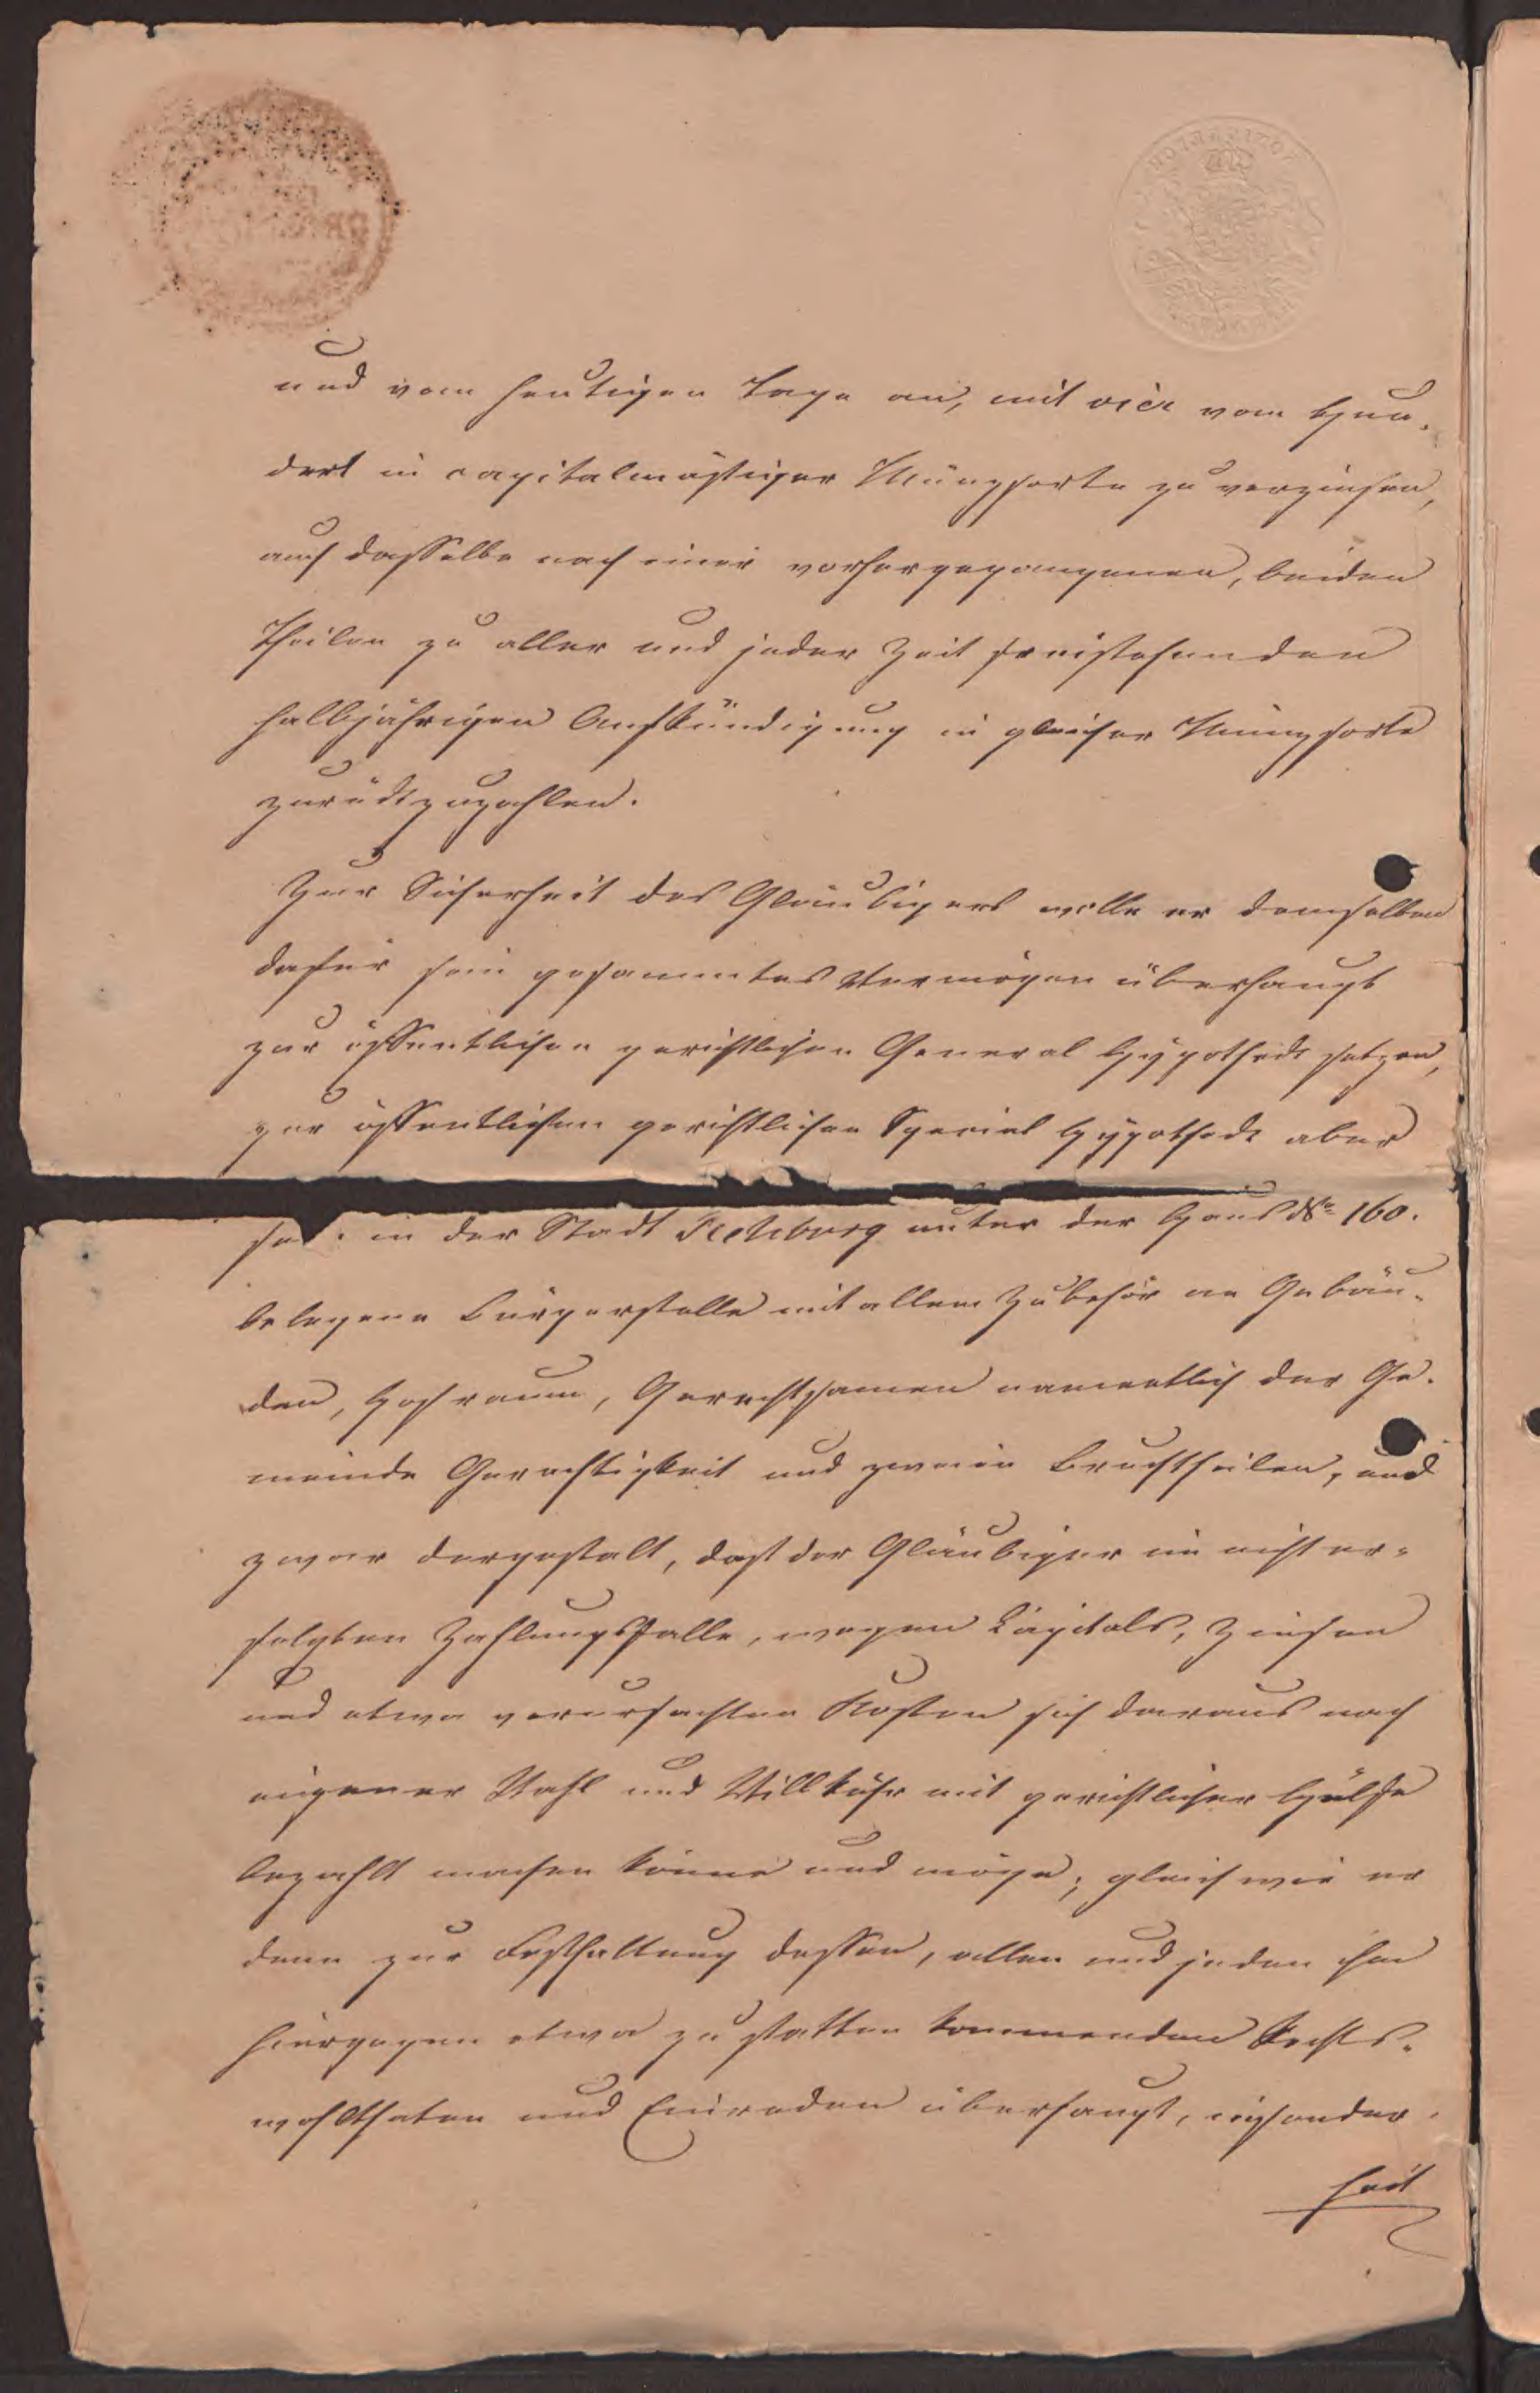 und vom heutigen Tage an, mit vier vom Hun-
dert in capitalmäßiger Münzsorte zu verzinsen,
auch dasselbe nach einer vorhergegangenen, beiden
Theilen zu aller und jeder Zeit freistehenden
halbjährigen Aufkündigung in gleicher Münzsorte
zurückzuzahlen.
Zur Sicherheit des Gläubigers wolle er demselben
dafür sein gesammtes Vermögen überhaupt
zur öffentlichen gerichtlichen General Hypothek setzen,
zur öffentlichen gerichtlichen Special Hypothek aber
in der Stadt Rehburg unter der Haus No 160.
belegene Bürgerstelle mit allem Zubehör an Gebäu-
den, Hofraum, Gerechtsamen namentlich der Ge-
meinde Gerechtigkeit und zweien Bruchtheilen, und
zwar dergestalt, daß der Gläubiger im nicht er-
folgten Zahlungsfalle, wegen Capitals, Zinsen
und etwa verursachten Kosten sich daraus nach
eigener Wahl und Willkühr mit gerichtlicher Hülfe
bezahlt machen könne und möge; gleich wie er
denn zur Festhaltung dessen, allen und jeden ihm
hiergegen etwa zu statten kommenden Rechts-
wohlthaten und Einreden überhaupt, insonder-
heit